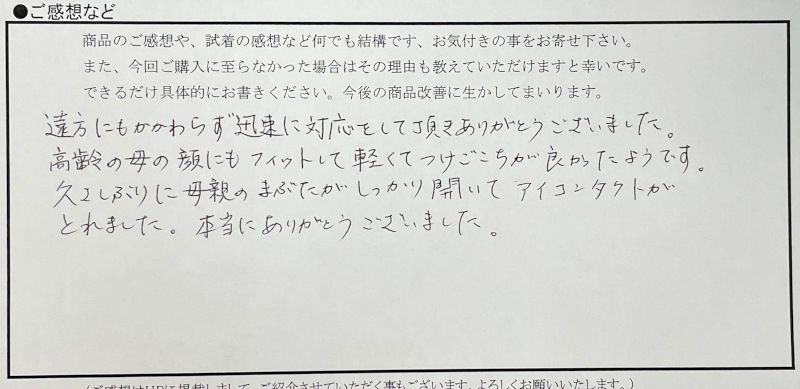 ●ご感想など
商品のご感想や、試着の感想など何でも結構です、お気付きの事をお寄せ下さい。
また、今回ご購入に至らなかった場合はその理由も教えていただけますと幸いです。
できるだけ具体的にお書きください。今後の商品改善に生かしてまいります。
遠方にもかかわらず迅速に対応をして頂きありがとうございました。
高齢の母の顔にもフィットして軽くてつけごこちが良かったようです。
久しぶりに母親のまぶたがしっかり開いてアイコンタクトが
とれました。本当にありがとうございました。
(ご感想はHPに掲載しまして、ご紹介させていただく事もございます。よろしくお願いいたします。)